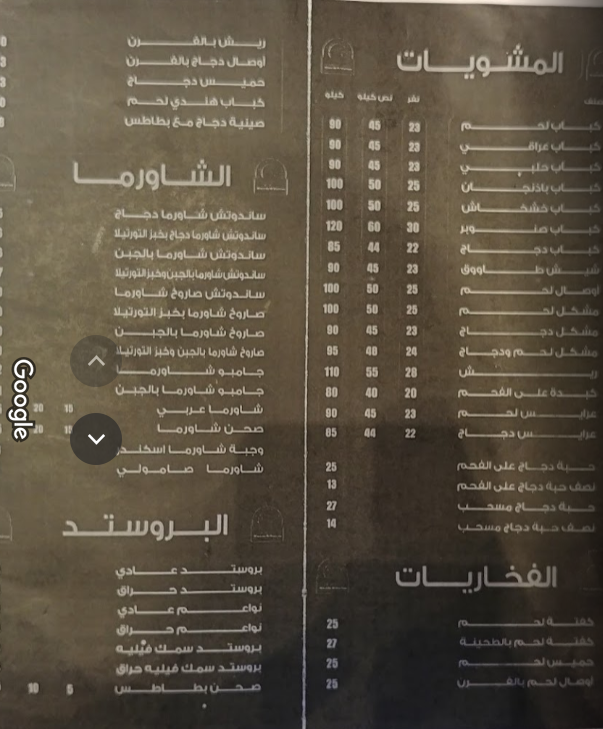 المشويات
نفر نص كيلو كيلو
كباب لحم 23 45 90
كباب عراقي 23 45 90
كباب حلبي 23 45 90
كباب باذنجان 25 50 100
كباب خشخاش 25 50 100
كباب صنوبر 30 60 120
كباب دجاج 22 44 85
شيش طاووق 23 45 90
اوصال لحم 25 50 100
مشكل لحم 25 50 100
مشكل دجاج 23 45 90
مشكل لحم ودجاج 24 48 95
ريش 28 55 110
كبدة على الفحم 20 40 80
عرايس لحم 23 45 90
عرايس دجاج 22 44 85
حبة دجاج على الفحم 25
نصف حبة دجاج على الفحم 13
حبة دجاج مسحب 27
نصف حبة دجاج مسحب 14
الفخاريات
كفتة لحم 25
كفتة لحم بالطحينة 27
حميس لحم 25
أوصال لحم بالفرن 25
ريش بالفرن
أوصال دجاج بالفرن
حميس دجاج
كباب هندي لحم
صينية دجاج مع بطاطس
الشاورما
ساندوتش شاورما دجاج
ساندوتش شاورما دجاج بخبز التورتيلا
ساندوتش شاورما بالجبن
ساندوتش شاورما بالجبن وخبز التورتيلا
ساندوتش صاروخ شاورما
صاروخ شاورما بخبز التورتيلا
صاروخ شاورما بالجبن
صاروخ شاورما بالجبن وخبز التورتيلا
جامبو شاورما
جامبو شاورما بالجبن
شاورما عربي 15 20
صحن شاورما 15 20
وجبة شاورما اسكندر
شاورما صامولي
البروستد
بروستد عادي
بروستد حراق
نواعم عادي
نواعم حراق
بروستد سمك فيليه
بروستد سمك فيليه حراق
صحن بطاطس 5 10
Google